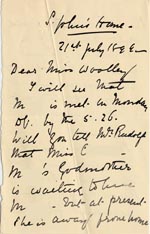 S. John's Home
21st July
Dear Miss Woolley
I will see that
M is met on Monday
by the 5.26.
Will you tell Mr. Rudolf
that Miss E
M s Godmother
is waiting to have
M - but at present
she is away from home